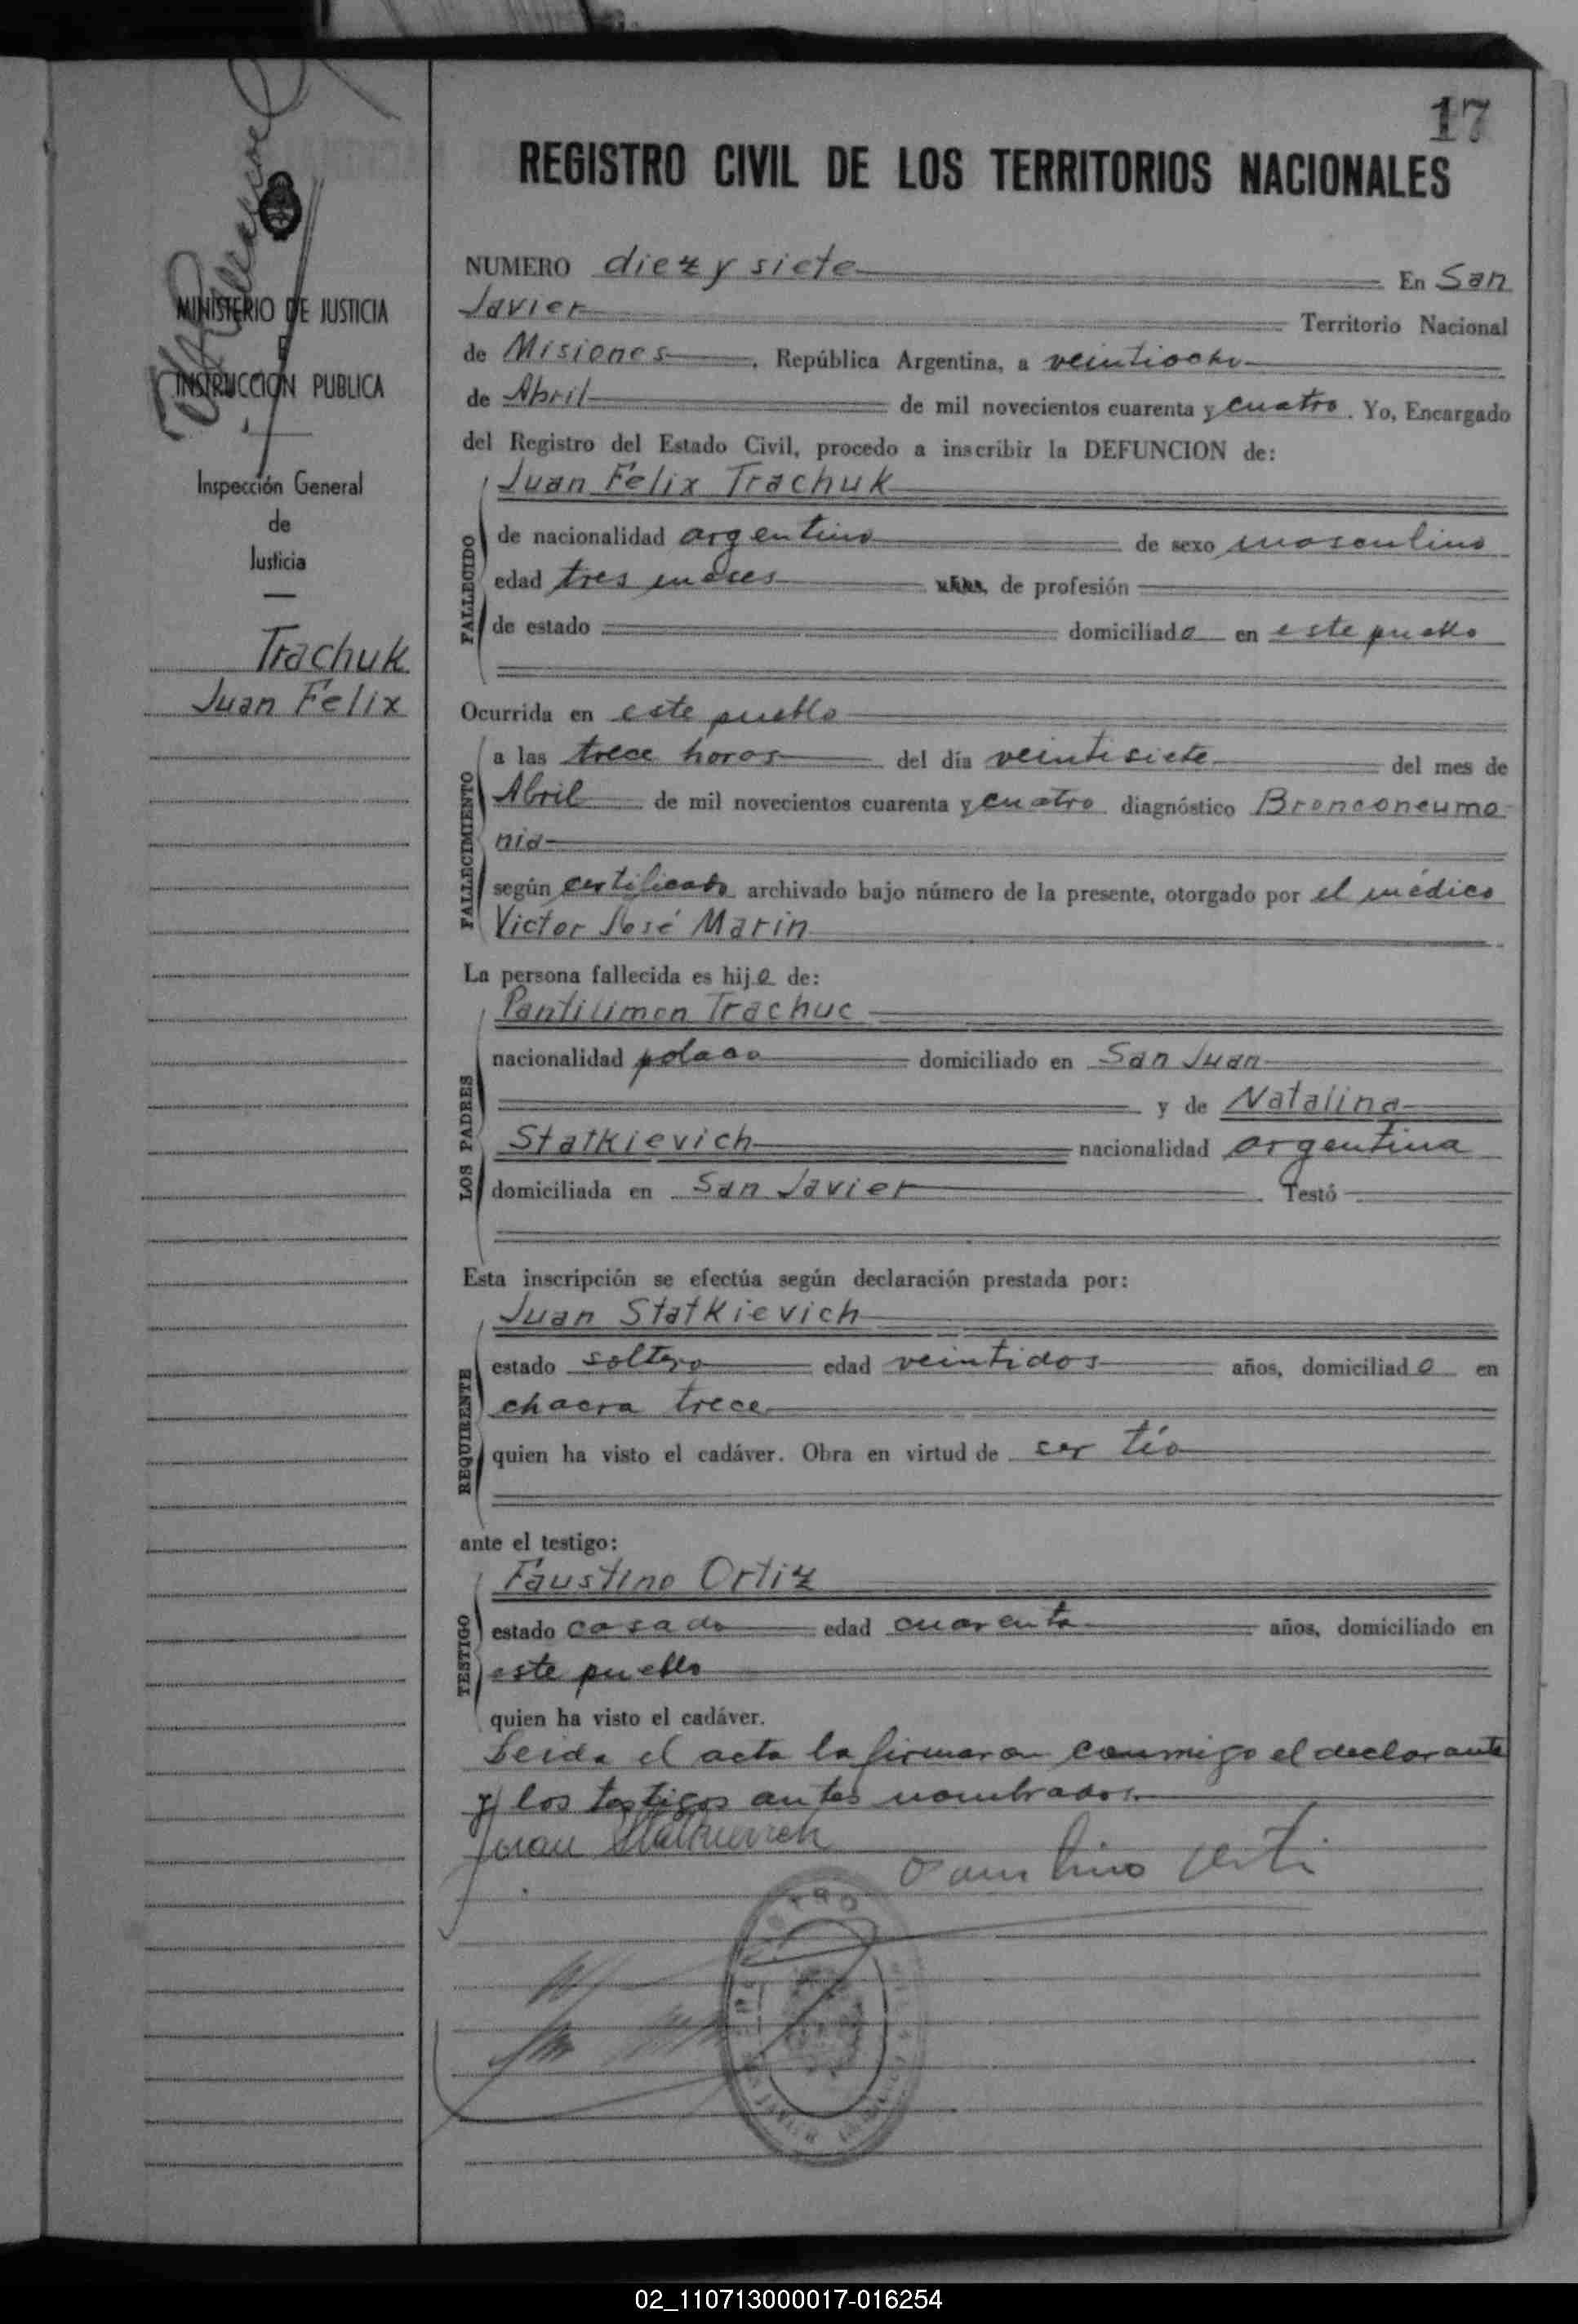 17
REGISTRO CIVIL DE LOS TERRITORIOS NACIONALES
MINISTERIO DE JUSTICIA
E
INSTRUCCION PUBLICA
Inspección General
de
Justicia
Trachuk
Juan Felix
NUMERO diez y siete En San
Javier Territorio Nacional
de Misiones, República Argentina, a veintiocho
de Abril de mil novecientos cuarenta y cuatro. Yo, Encargado
del Registro del Estado Civil, procedo a inscribir la DEFUNCION de:
FALLECIDO
Juan Felix Trachuk
de nacionalidad argentino de sexo masculino
edad tres meses años, de profesión
de estado domiciliado en este pueblo
Ocurrida en este pueblo
FALLECIMIENTO
a las trece horas del día veintisiete del mes de
Abril de mil novecientos cuarenta y cuatro diagnóstico Bronconeumo-
nia
según certificado archivado bajo número de la presente, otorgado por el médico
Victor José Marin
La persona fallecida es hijo de:
LOS PADRES
Pantilimon Trachuc
nacionalidad polaco domiciliado en San Juan
y de Natalina
Statkievich nacionalidad argentina
domiciliada en San Javier. Testó
Esta inscripción se efectúa según declaración prestada por:
REQUIRENTE
Juan Statkievich
estado soltero edad veintidos años, domiciliado en
chacra trece
quien ha visto el cadáver. Obra en virtud de ser tío
ante el testigo:
TESTIGO
Faustino Ortiz
estado casado edad cuarenta años, domiciliado en
este pueblo
quien ha visto el cadáver.
Leida el acta la firmaron conmigo el declarante
y los testigos antes nombrados.
Juan Statkievich
Faustino Orti
02_110713000017-016254